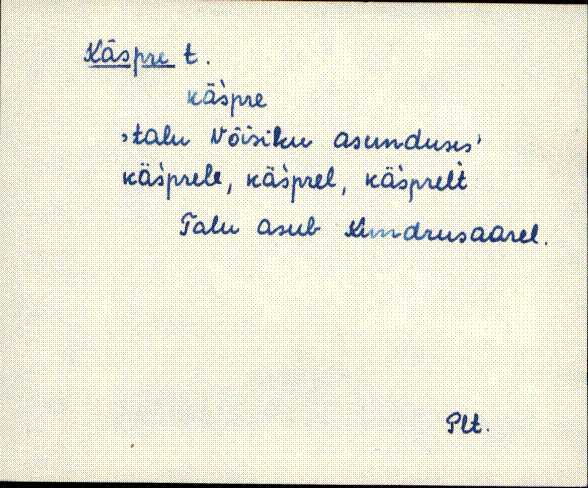 Käspre t.
käs̀pre
‚talu Võisiku asunduses’
käs̀prele, käs̀prel, käs̀prelt
Talu asub Kundrusaarel.
Plt.